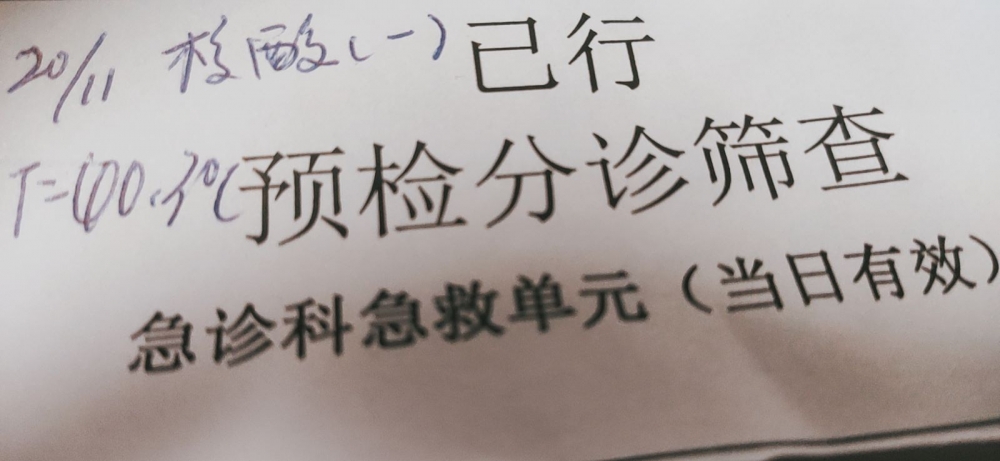 20/11 核酸(-) 已行
T=40.3℃ 预检分诊筛查
急诊科急救单元（当日有效）